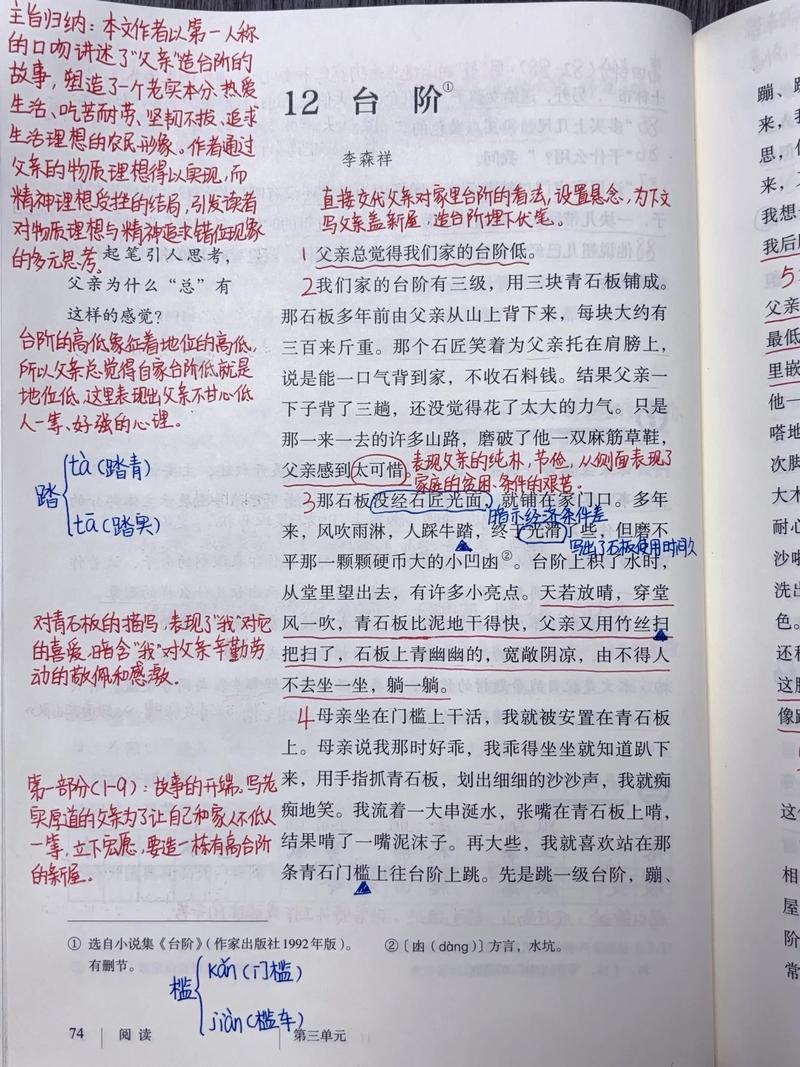 主旨归纳：本文作者以第一人称
的口吻讲述了"父亲"造台阶的
故事，塑造了一个老实本分、热爱
生活、吃苦耐劳、坚韧不拔、追求
生活理想的农民形象。作者通过
父亲的物质理想得以实现，而
精神理想受挫的结局，引发读者
对物质理想与精神追求错位现象
的多元思考。
起笔引人思考，
父亲为什么“总”有
这样的感觉？
台阶的高低象征着地位的高低，
所以父亲总觉得自家台阶低，就是
地位低，这里表现出父亲不甘心低
人一等、好强的心理。
踏
tà（踏青）
tā（踏实）
对青石板的描写，表现了"我"对它
的喜爱，暗含"我"对父亲辛勤劳
动的敬佩和感激。
第一部分（1-9）：故事的开端。写老
实厚道的父亲为了让自己和家人不低人
一等，立下宏愿，要造一栋有高台阶
的新屋。
12 台 阶①
李森祥
直接交代父亲对家里台阶的看法，设置悬念，为下文
写父亲盖新屋，造台阶埋下伏笔。
1 父亲总觉得我们家的台阶低。
2 我们家的台阶有三级，用三块青石板铺成。
那石板多年前由父亲从山上背下来，每块大约有
三百来斤重。那个石匠笑着为父亲托在肩膀上，
说是能一口气背到家，不收石料钱。结果父亲一
下子背了三趟，还没觉得花了太大的力气。只是
那一来一去的许多山路，磨破了他一双麻筋草鞋，
父亲感到太可惜。
表现父亲的纯朴、节俭，从侧面表现了
家庭的贫困、条件的艰苦。
3 那石板没经石匠光面，就铺在家门口。多年
暗示经济条件差
来，风吹雨淋，人踩牛踏，终于光滑了些，但磨不
写出了石板使用时间久
平那一颗颗硬币大的小凼②。台阶上积了水时，
从堂里望出去，有许多小亮点。天若放晴，穿堂
风一吹，青石板比泥地干得快，父亲又用竹丝扫
把扫了，石板上青幽幽的，宽敞阴凉，由不得人
不去坐一坐，躺一躺。
4 母亲坐在门槛上干活，我就被安置在青石板
上。母亲说我那时好乖，我乖得坐坐就知道趴下
来，用手指抓青石板，划出细细的沙沙声，我就痴
痴地笑。我流着一大串涎水，张嘴在青石板上啃，
结果啃了一嘴泥沫子。再大些，我就喜欢站在那
条青石门槛上往台阶上跳。先是跳一级台阶，蹦、
① 选自小说集《台阶》（作家出版社1992年版）。
有删节。
②〔凼（dàng）〕方言，水坑。
槛
kǎn（门槛）
jiàn（槛车）
74 阅 读
第三单元
蹦、跳
来，我
思，但
来，又
我想
我后
5
父亲
最低
里嵌
他一
嗒地
次脚
大木
耐心
沙啦
洗出
色。
还积
这脚
像跳
这个
相
屋
阶
常